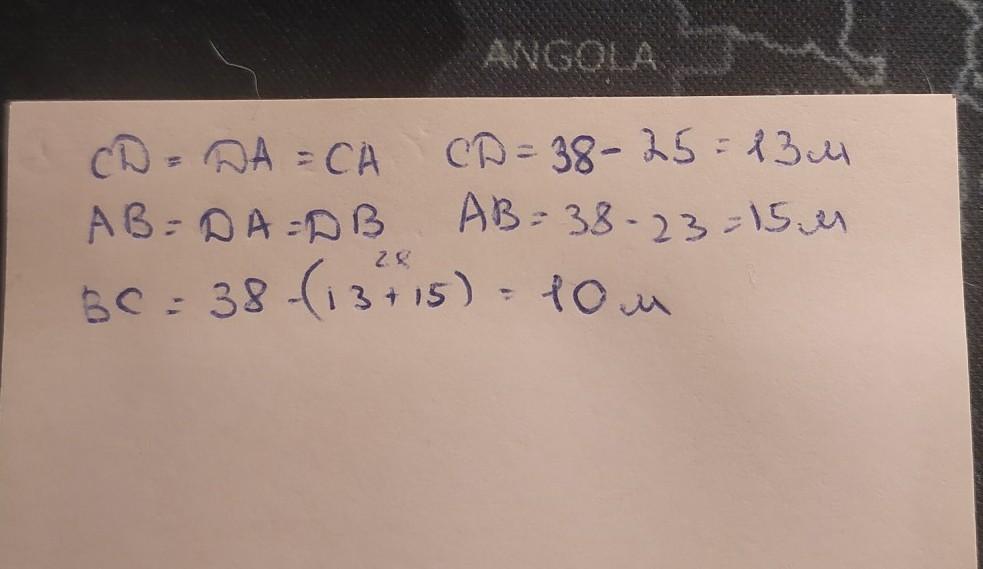 ANGOLA
CD = DA = CA CD = 38 - 25 = 13 м
AB = DA = DB AB = 38 - 23 = 15 м
28
BC = 38 - (13 + 15) = 10 м